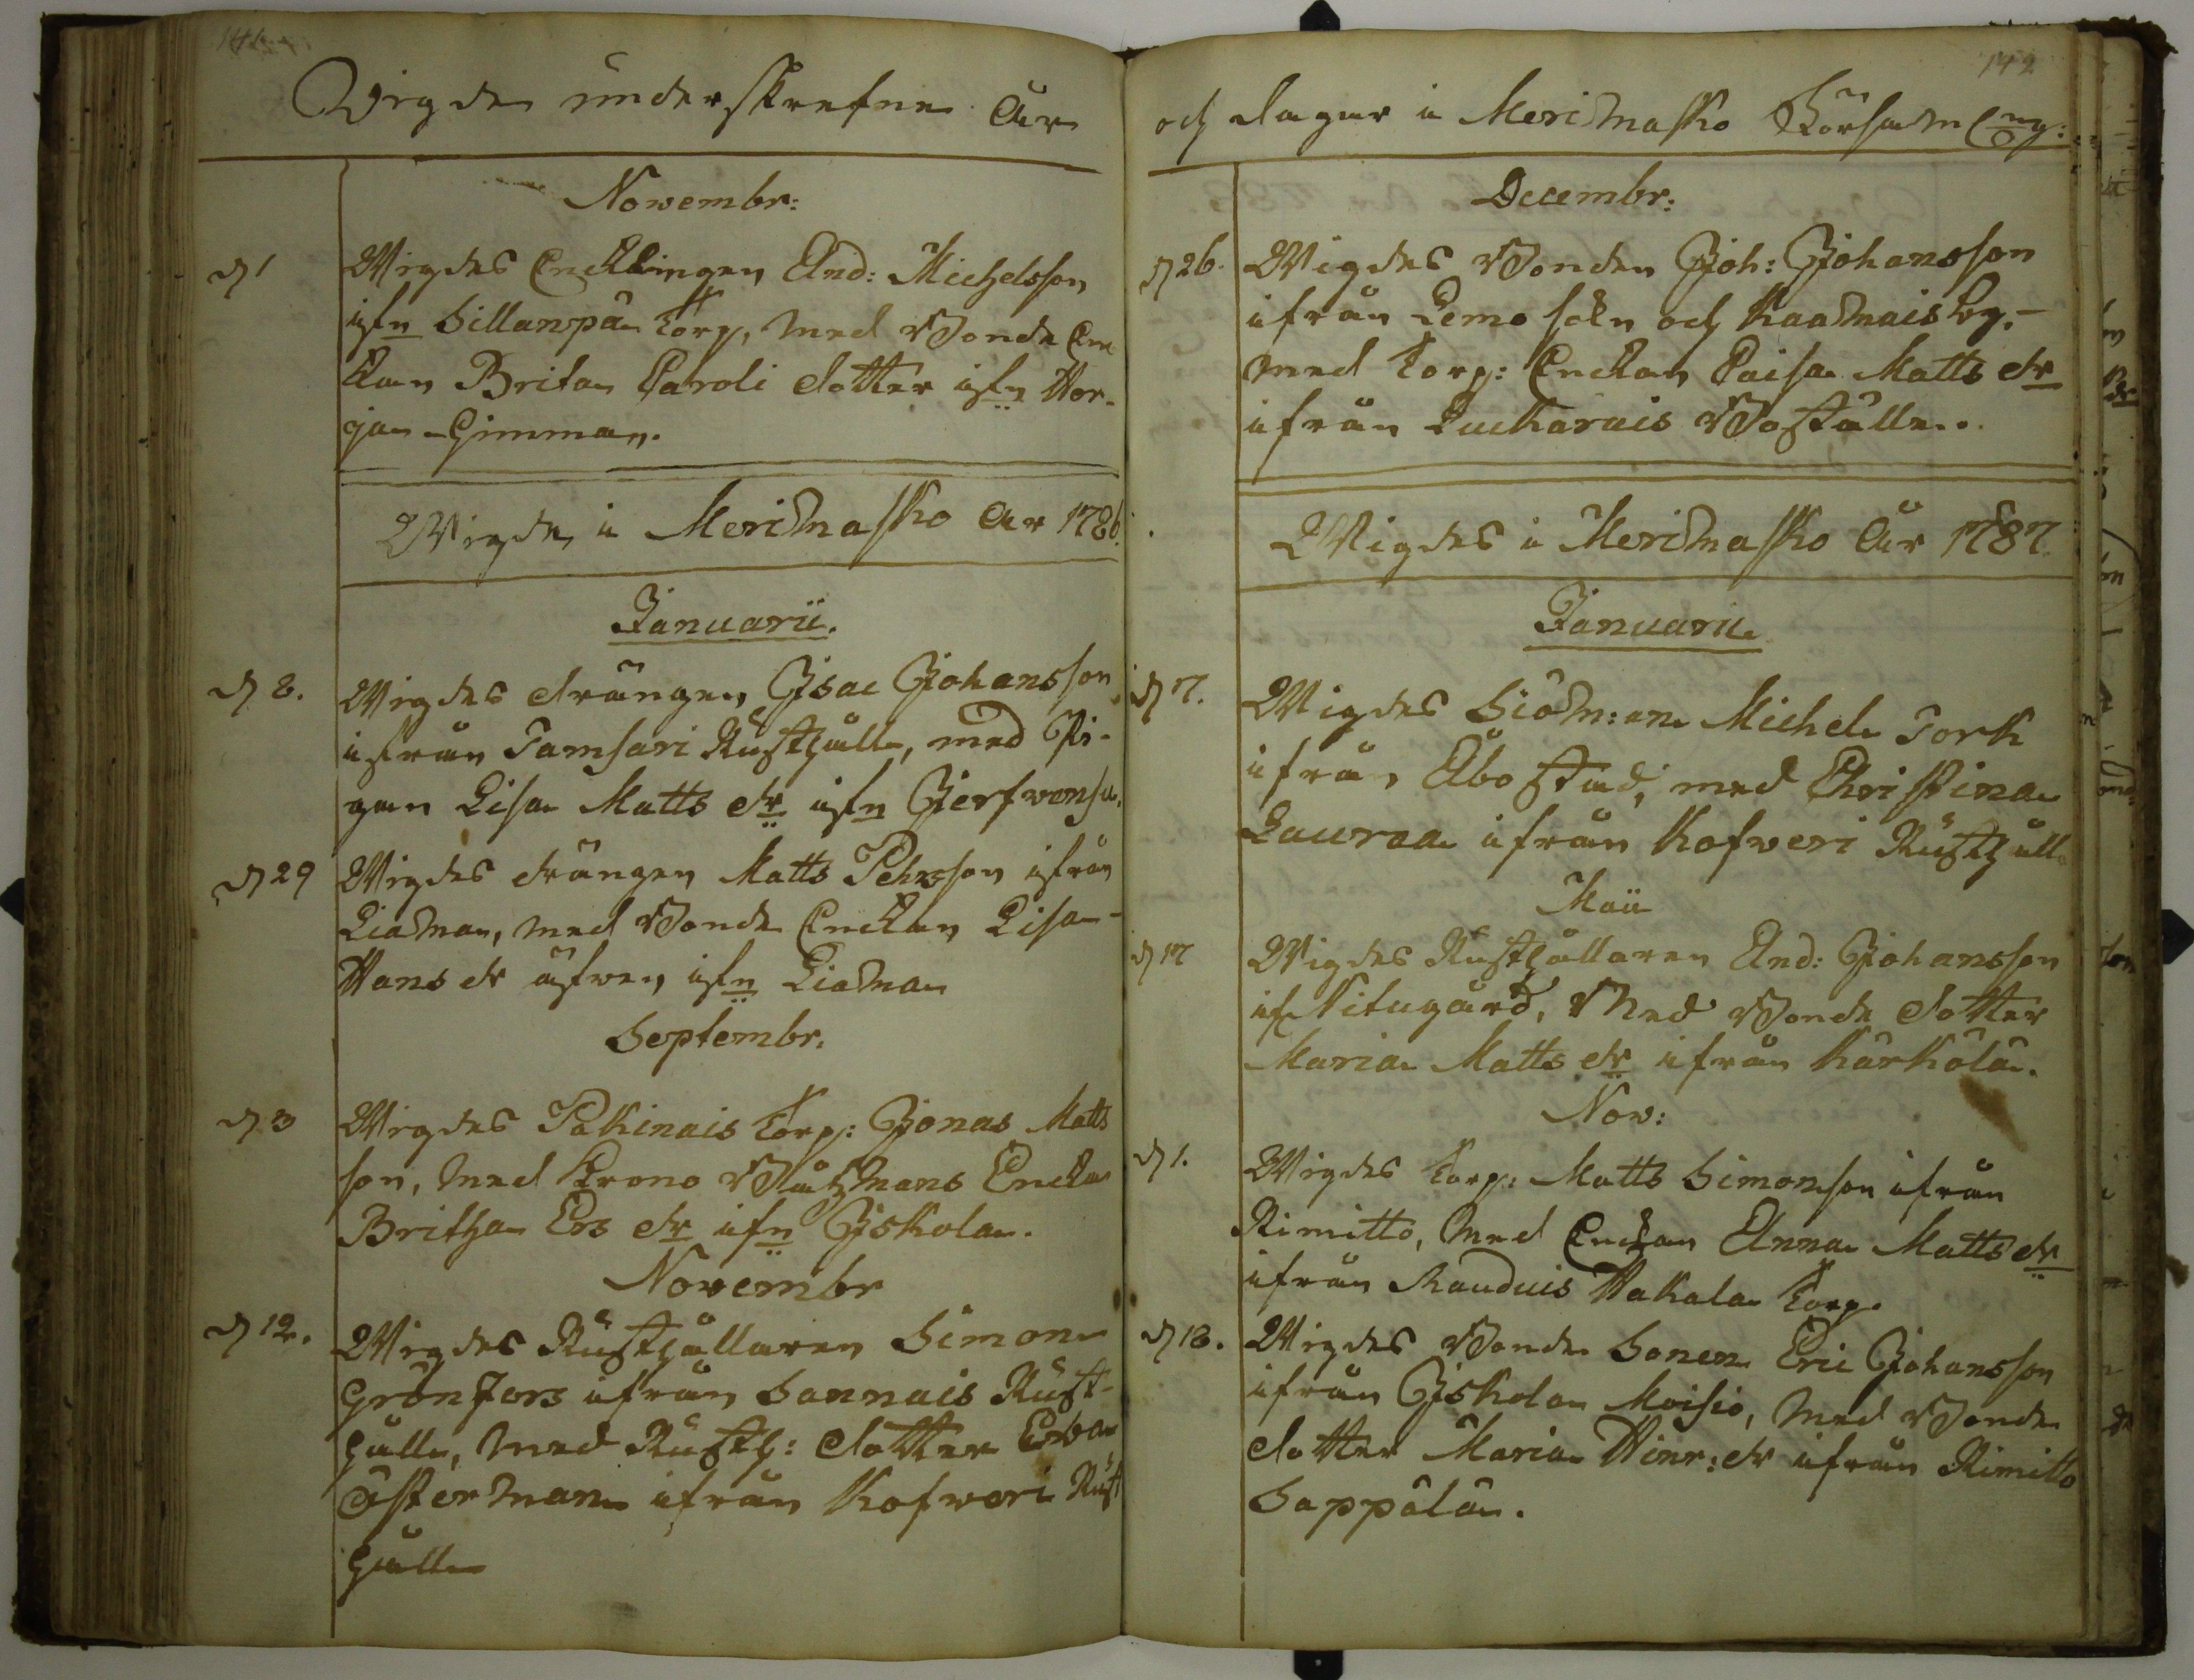 Wigde underskrefne Åhr
Novembr:
d 1 Wigdes Encklingen And: Michelsson
ifrn Sillanpä Torp, med Bonde En¬
kan Brita Caroli dotter ifrn Kor¬
ja-Gimma.
Wigde i Merimasko Åhr 1786.
Januarii.
d 8. Wigdes drängen Isac Johansson
ifrån Tamsari Rusthålle, med Pi¬
gan Lisa Matts dr ifrn
d 29 Wigdes drängen Matts Pehrsson ifrån
Liama, med Bonde Enckan Lisa
Hans dr äfwen ifrn Liama
Septembr.
d 3 Wigdes Pakinais Torp: Jonas Matts
son, med Krono Båtzmans Encka
Britha Ers dr ifrn Iskola.
Novembr
d 12. Wigdes Rusthållaren Simon
Grönfors ifrån Sannais Rust¬
hålle, med Rusth: dotter Ewa
Österman ifrån Kofweri Rust
hålle
142
och dagar i Merimasko Församling:
Decembr:
d 26. Wigdes Bonden Joh: Johansson
ifrån Lemo sokn och Kaamais by,
med Torp: Enckan Caisa Matts dr
ifrån Luckarais Boställe.
Wigdes i Merimasko Åhr 1787
Januarii
d 7. Wigdes Siöm:an Michel Tork
ifrån Åbo stad, med Christina
Lauraa ifrån Kofweri Rusthåll
Maii
d 17 Wigdes Rusthållaren And: Johansson
if Nitugård, Med Bonde dotter
Maria Matts dr ifrån Karkola.
Nov:
d 1. Wigdes Torp: Matts Simonson ifrån
Rimitto, Med Enckan Anna Matts dr
ifrån Rauduis Hakala Torp.
d 18. Wigdes Bonde Sonen Eric Johansson
ifrån Iskola Moisio, Med Bonde
dotter Maria Hinr: dr ifrån Rimitto
Sappälä.